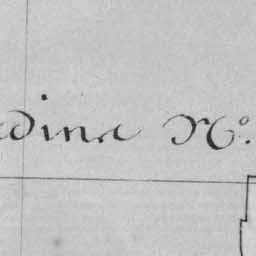 edina Nº.